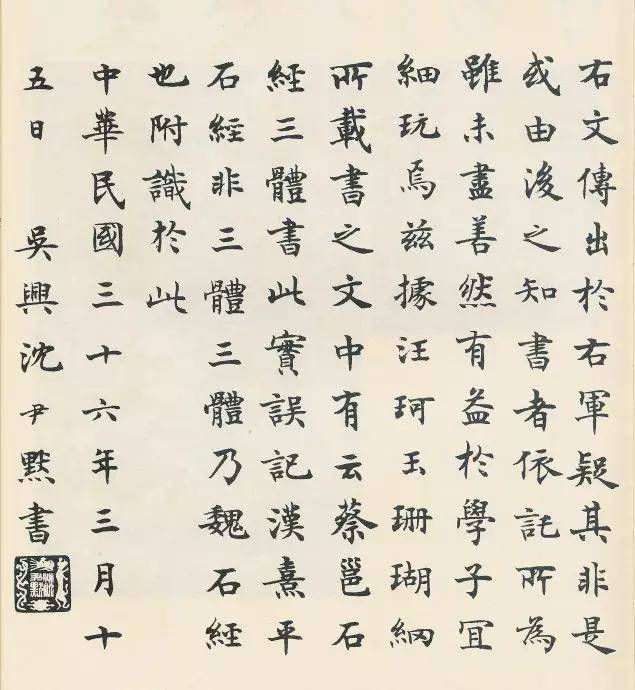 右文傳出於右軍疑其非是
或由後之知書者依託所為
雖未盡善然有益於學子宜
細玩焉兹據汪珂玉珊瑚網
所載書之文中有云蔡邕石
經三體書此實誤記漢熹平
石經非三體三體乃魏石經
也附識於此
中華民國三十六年三月十
五日 吳興沈尹默書